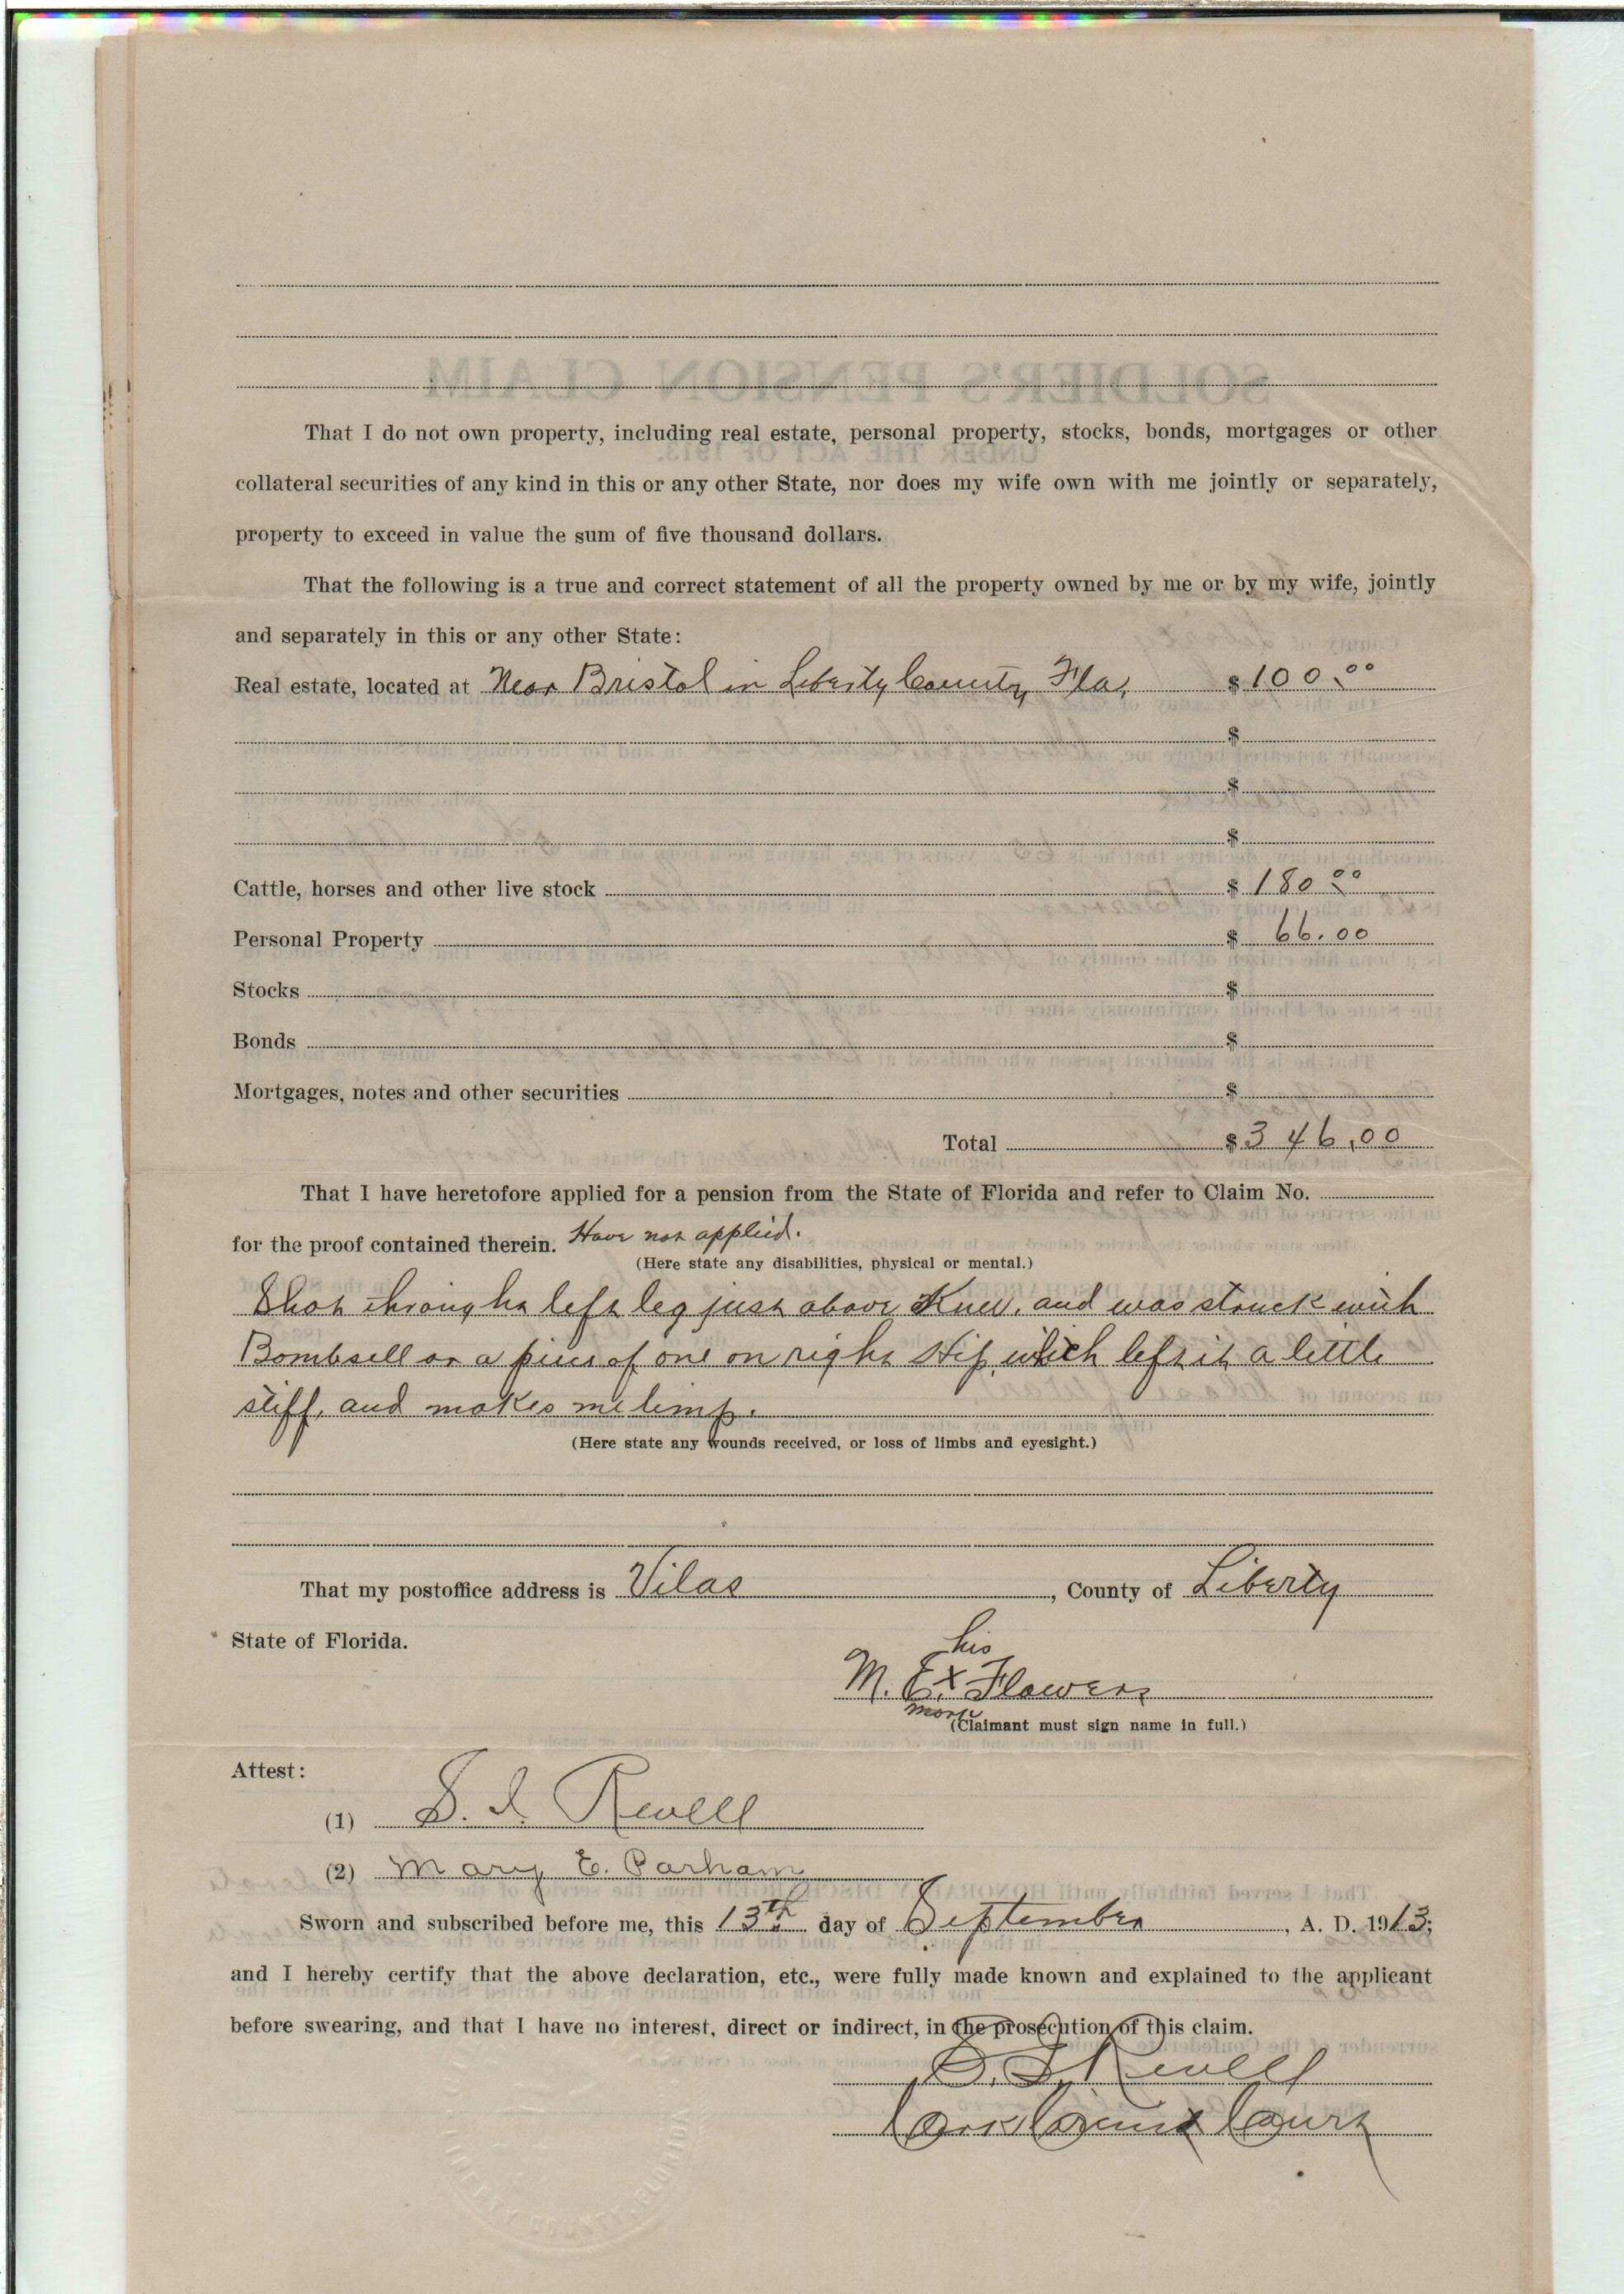 That I do not own property, including real estate, personal property, stocks, bonds, mortgages or other
collateral securities of any kind in this or any other State, nor does my wife own with me jointly or separately,
property to exceed in value the sum of five thousand dollars.
That the following is a true and correct statement of all the property owned by me or by my wife, jointly
and separately in this or any other State:
Real estate, located at Near Bristol in Liberty County, Fla, $ 100.00
$
$
$
Cattle, horses and other live stock $ 180 00
Personal Property $ 66.00
Stocks $
Bonds $
Mortgages, notes and other securities $
Total $ 346,00
That I have heretofore applied for a pension from the State of Florida and refer to Claim No.
for the proof contained therein. Have not applied.
(Here state any disabilities, physical or mental.)
Shot through left leg just above Knee, and was struck with
Bombsell or a piece of one on right Hip, which left it a little
stiff, and makes me limp.
(Here state any wounds received, or loss of limbs and eyesight.)
That my postoffice address is Vilas, County of Liberty
State of Florida.
his
M. E. x Flowers
mark
(Claimant must sign name in full.)
Attest:
(1) S. I. Revell
(2) Mary E. Parham
Sworn and subscribed before me, this 13th day of September, A. D. 1913;
and I hereby certify that the above declaration, etc., were fully made known and explained to the applicant
before swearing, and that I have no interest, direct or indirect, in the prosecution of this claim.
S. I. Revell
Circuit Court